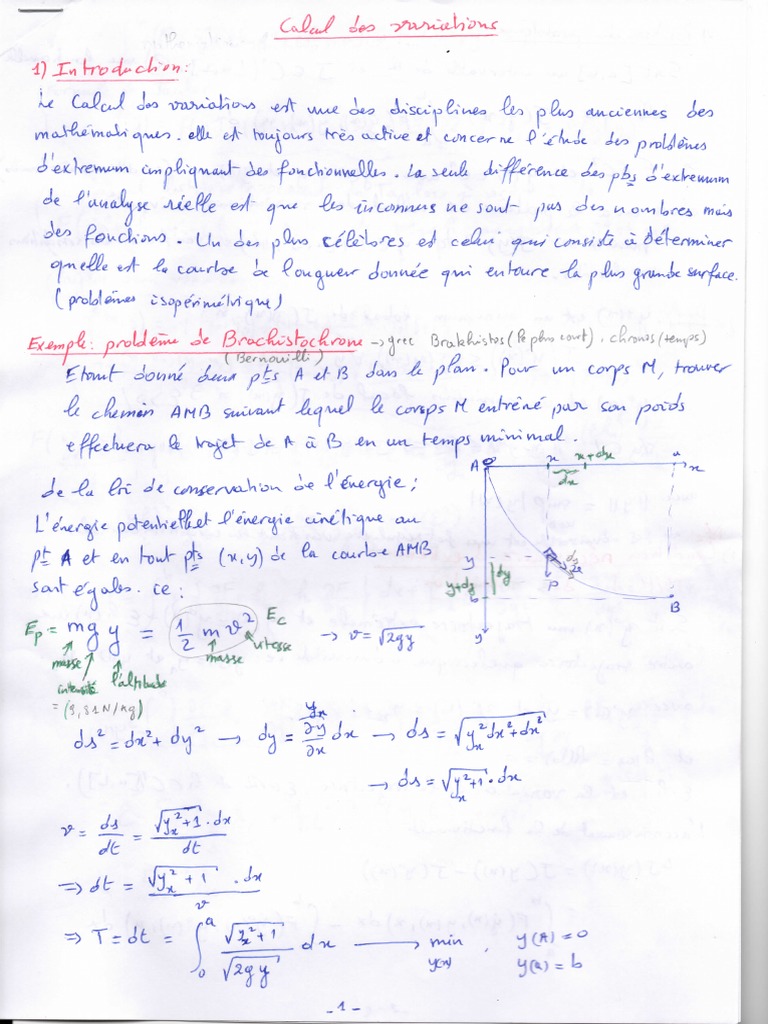 Calcul des variations
1) Introduction:
Le Calcul des variations est une des disciplines les plus anciennes des
mathématiques. elle est toujours très active et concerne l'étude des problèmes
d'extremum impliquant des fonctionnelles. La seule différence des pbs d'extremum
de l'analyse réelle est que les inconnus ne sont pas des nombres mais
des fonctions. Un des plus célèbres est celui qui consiste à déterminer
quelle est la courbe de longueur donnée qui entoure la plus grande surface.
(problèmes isopérimétrique)
Exemple: problème de Brachistochrone → grec Brakhistos (le plus court). chronos (temps)
(Bernouilli)
Etant donné deux pts A et B dans le plan. Pour un corps M, trouver
le chemin AMB suivant lequel le corps M entrêné par son poids
effectuera le trajet de A à B en un temps minimal.
A x x+dx a x
dx
de la loi de conservation de l'énergie;
L'énergie potentielle et l'énergie cinétique au
pt A et en tout pts (x,y) de la courbe AMB
sont égales. ce:
y dy
y+dy
b P B
y
Ep = mgy = 1/2 m v² Ec → v = √2gy
masse masse vitesse
intensité l'altitude
= (9,81N/kg)
ds² = dx² + dy² → dy = ∂y/∂x dx → ds = √(y_x² dx² + dx²)
y_x
→ ds = √(y_x² + 1) · dx
v = ds/dt = √(y_x² + 1) · dx / dt
⇒ dt = √(y_x² + 1) · dx / v
⇒ T = dt = ∫₀ᵃ √(y_x² + 1) / √(2gy) dx → min y(x) , y(A) = 0
y(a) = b
- 1 -